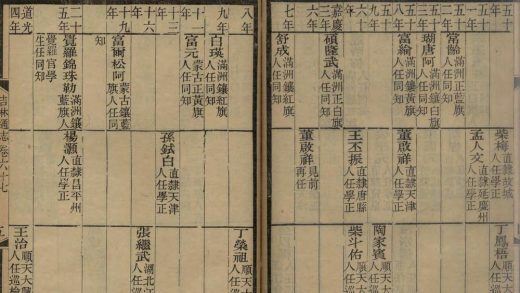 常
餘
滿洲正藍旗
人任同知
瑚唐阿
滿洲鑲白
旗人任同知
富綸
滿洲鑲白旗
人任同知
嘉慶
三年
碩隆武
滿洲正白旗
人任同知
六年
七年
舒成
滿洲鑲紅旗
人任同知
柴梅
直隸故城
人任學正
孟人文
直隸延慶州
人任學正
董啟祥
直隸天津
人任學正
王丕振
直隸唐縣
人任學正
董啟祥
見前
再任
丁鳳梧
順天大
人任巡
陶家賓
順天大
人任巡
柴斗佑
順天大
人任巡
八年
九年
白瑛
滿洲鑲紅旗
人任同知
十一年
富元
蒙古正黃旗
人任同知
十三年
十六年
十九年
富爾松阿
蒙古鑲藍
旗人任同
知
二十五年
覺羅錦珠勒
滿洲鑲
藍旗人
覺羅官學
生任同知
道光
四年
孫鉽白
直隸天津
人任學正
楊灝
直隸昌平州
人任學正
丁榮祖
順天大
人任巡
張繼武
湖北江
人任巡
王治
順天大興
人任巡檢
吉林通志卷六十七